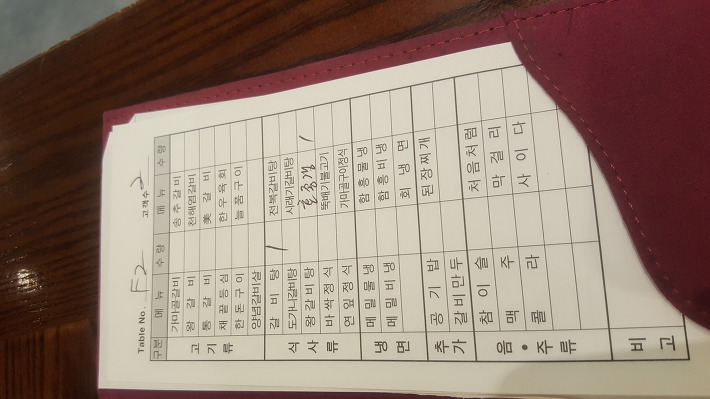 Table No. F2 고객수 2
구분 메 뉴 수 량 메 뉴 수 량
고 기 류
가마골갈비 송 추 갈 비
왕 갈 비 천해염갈비
통 갈 비 美 갈 비
채 끝 등 심 한 우 육 회
한 돈 구 이 늘 품 구 이
양념갈비살
식 사 류
갈 비 탕 1 전복갈비탕
도가니갈비탕 시래기갈비탕
왕 갈 비 탕 1
바 싹 정 식 뚝배기불고기
연 잎 정 식 가마골구이정식
냉 면
메 밀 물 냉 함 흥 물 냉
메 밀 비 냉 함 흥 비 냉
회 냉 면
추 가
공 기 밥 된 장 찌 개
갈 비 만 두
음 • 주 류
참 이 슬 처 음 처 럼
맥 주 막 걸 리
콜 라 사 이 다
비 고